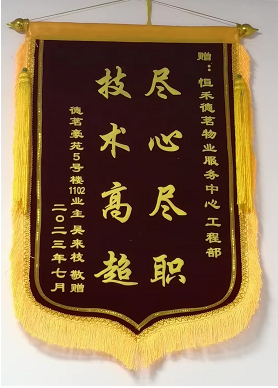 赠：恒禾德茗物业服务中心 工程部
尽心尽职
技术高超
德茗豪苑5号楼1102业主 吴来枝 敬赠
二〇二三年七月